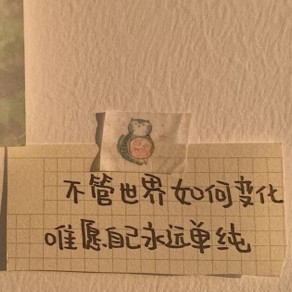 不管世界如何变化
唯愿自己永远单纯